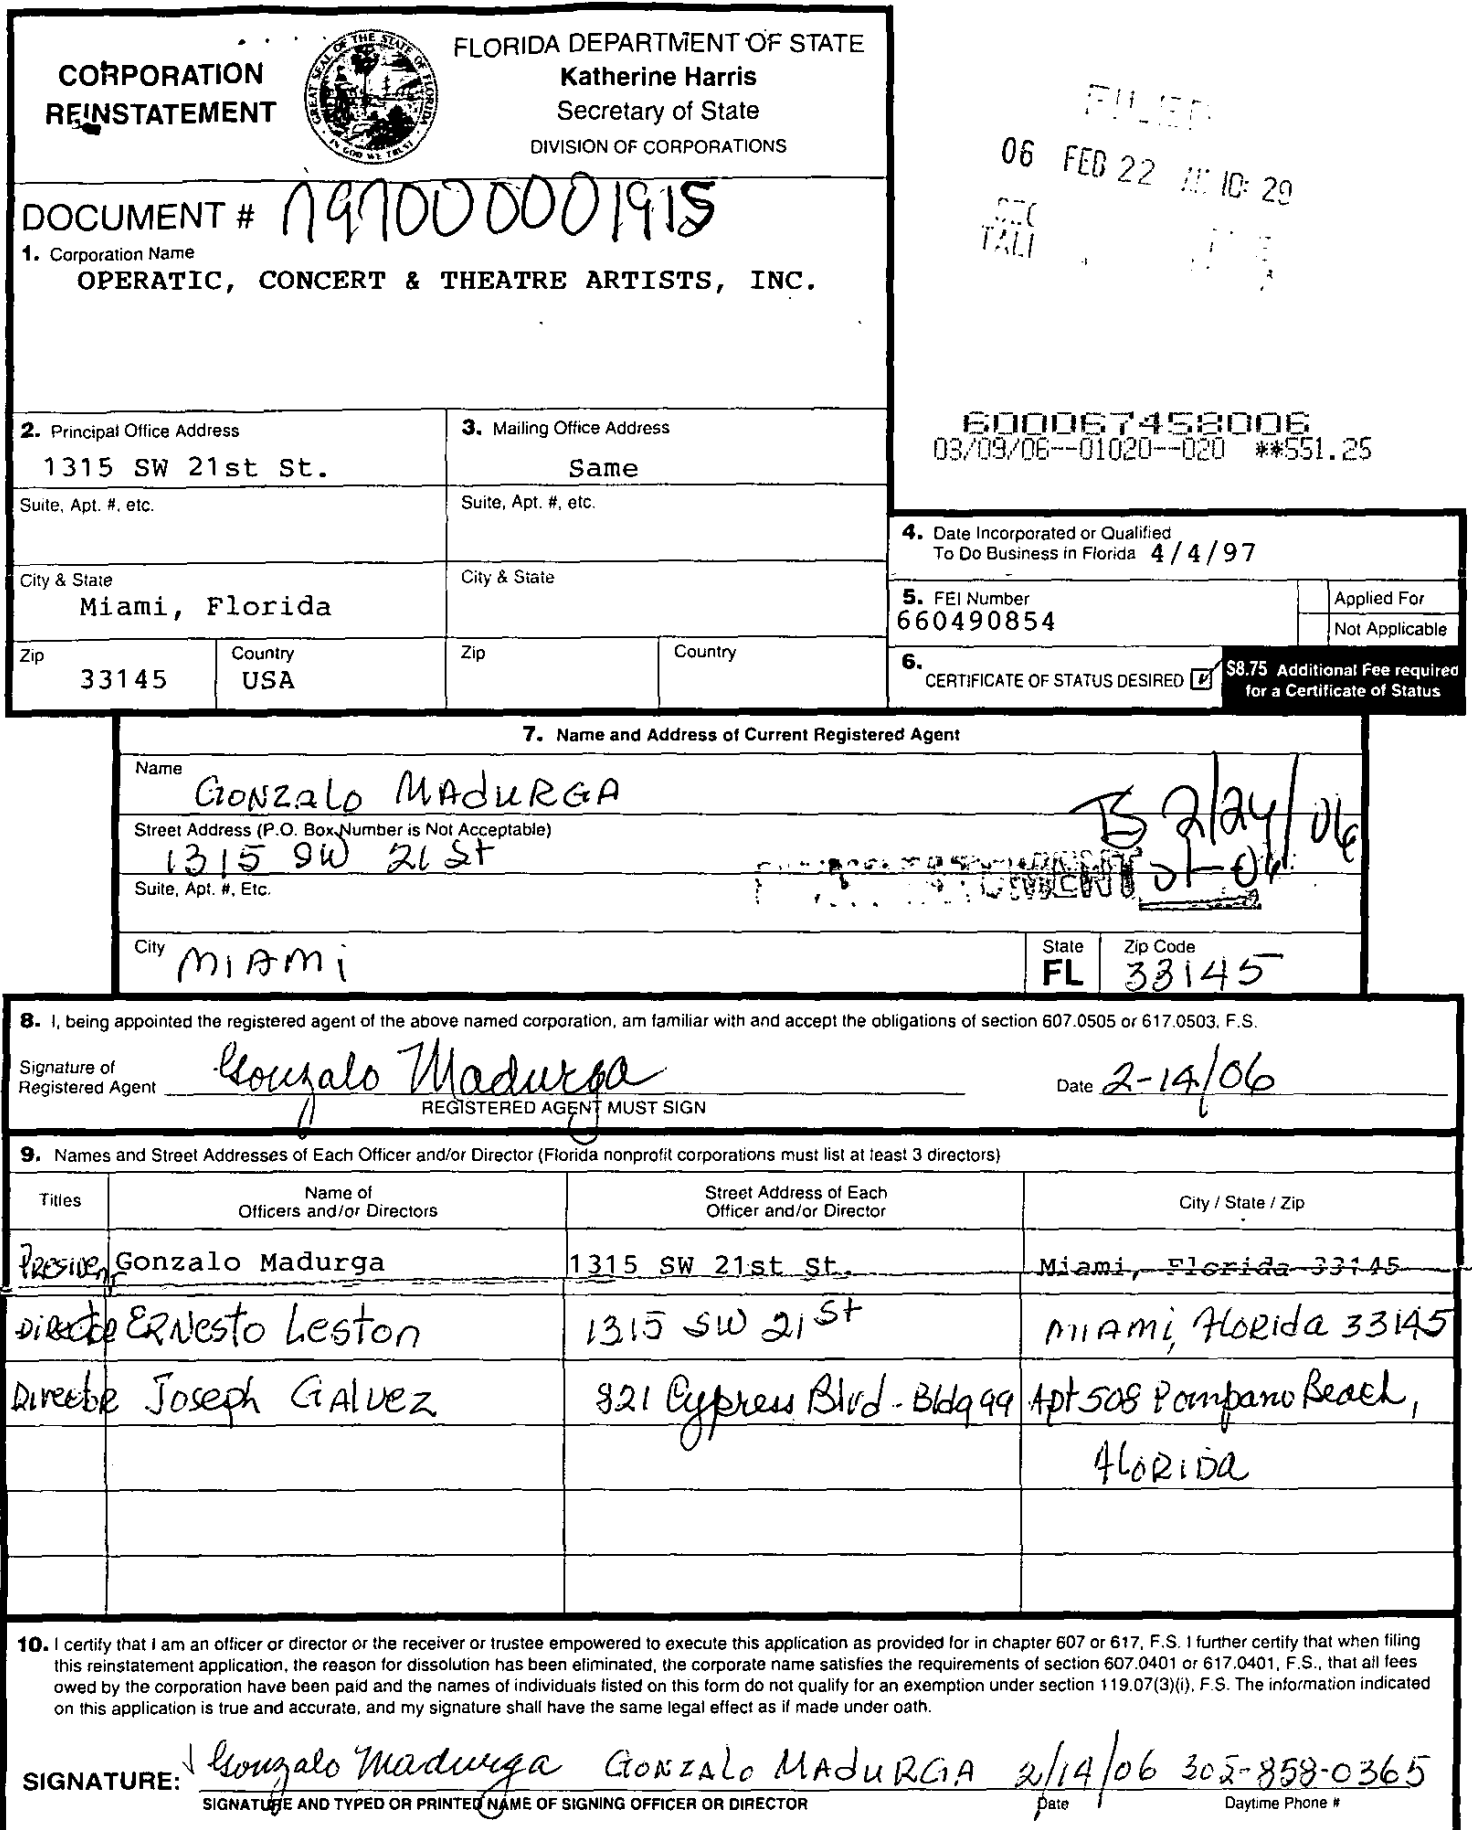 CORPORATION
REINSTATEMENT
GREAT SEAL OF THE STATE OF FLORIDA
IN GOD WE TRUST
FLORIDA DEPARTMENT OF STATE
Katherine Harris
Secretary of State
DIVISION OF CORPORATIONS
FILED
06 FEB 22 10: 29
DOCUMENT # N97000001915
1. Corporation Name
OPERATIC, CONCERT & THEATRE ARTISTS, INC.
600067458006
03/09/06--01020--020 **551.25
2. Principal Office Address
1315 SW 21st St.
3. Mailing Office Address
Same
Suite, Apt. #, etc.
Suite, Apt. #, etc.
City & State
Miami, Florida
City & State
Zip
33145
Country
USA
Zip
Country
4. Date Incorporated or Qualified
To Do Business in Florida 4/4/97
5. FEI Number
660490854
Applied For
Not Applicable
6. CERTIFICATE OF STATUS DESIRED
$8.75 Additional Fee required
for a Certificate of Status
7. Name and Address of Current Registered Agent
Name
GONZALO MADURGA
Street Address (P.O. Box Number is Not Acceptable)
1315 SW 21 St
2/24/06
01-06
Suite, Apt. #, Etc.
City MIAMI
State
FL
Zip Code
33145
8. I, being appointed the registered agent of the above named corporation, am familiar with and accept the obligations of section 607.0505 or 617.0503, F.S.
Signature of
Registered Agent Gonzalo Madurga
Date 2-14/06
REGISTERED AGENT MUST SIGN
9. Names and Street Addresses of Each Officer and/or Director (Florida nonprofit corporations must list at least 3 directors)
Titles
Name of
Officers and/or Directors
Street Address of Each
Officer and/or Director
City / State / Zip
Presiden Gonzalo Madurga 1315 SW 21st St. Miami, Florida 33145
Director ERNesto Leston 1315 SW 21 St MIAMI, Florida 33145
Director Joseph GALVEZ 821 Cypress Blvd - Bldg 99 Apt 508 Pompano Beach,
FLORIDA
10. I certify that I am an officer or director or the receiver or trustee empowered to execute this application as provided for in chapter 607 or 617, F.S. I further certify that when filing
this reinstatement application, the reason for dissolution has been eliminated, the corporate name satisfies the requirements of section 607.0401 or 617.0401, F.S., that all fees
owed by the corporation have been paid and the names of individuals listed on this form do not qualify for an exemption under section 119.07(3)(i), F.S. The information indicated
on this application is true and accurate, and my signature shall have the same legal effect as if made under oath.
SIGNATURE: Gonzalo Madurga GONZALO MADURGA 2/14/06 305-858-0365
SIGNATURE AND TYPED OR PRINTED NAME OF SIGNING OFFICER OR DIRECTOR
Date
Daytime Phone #